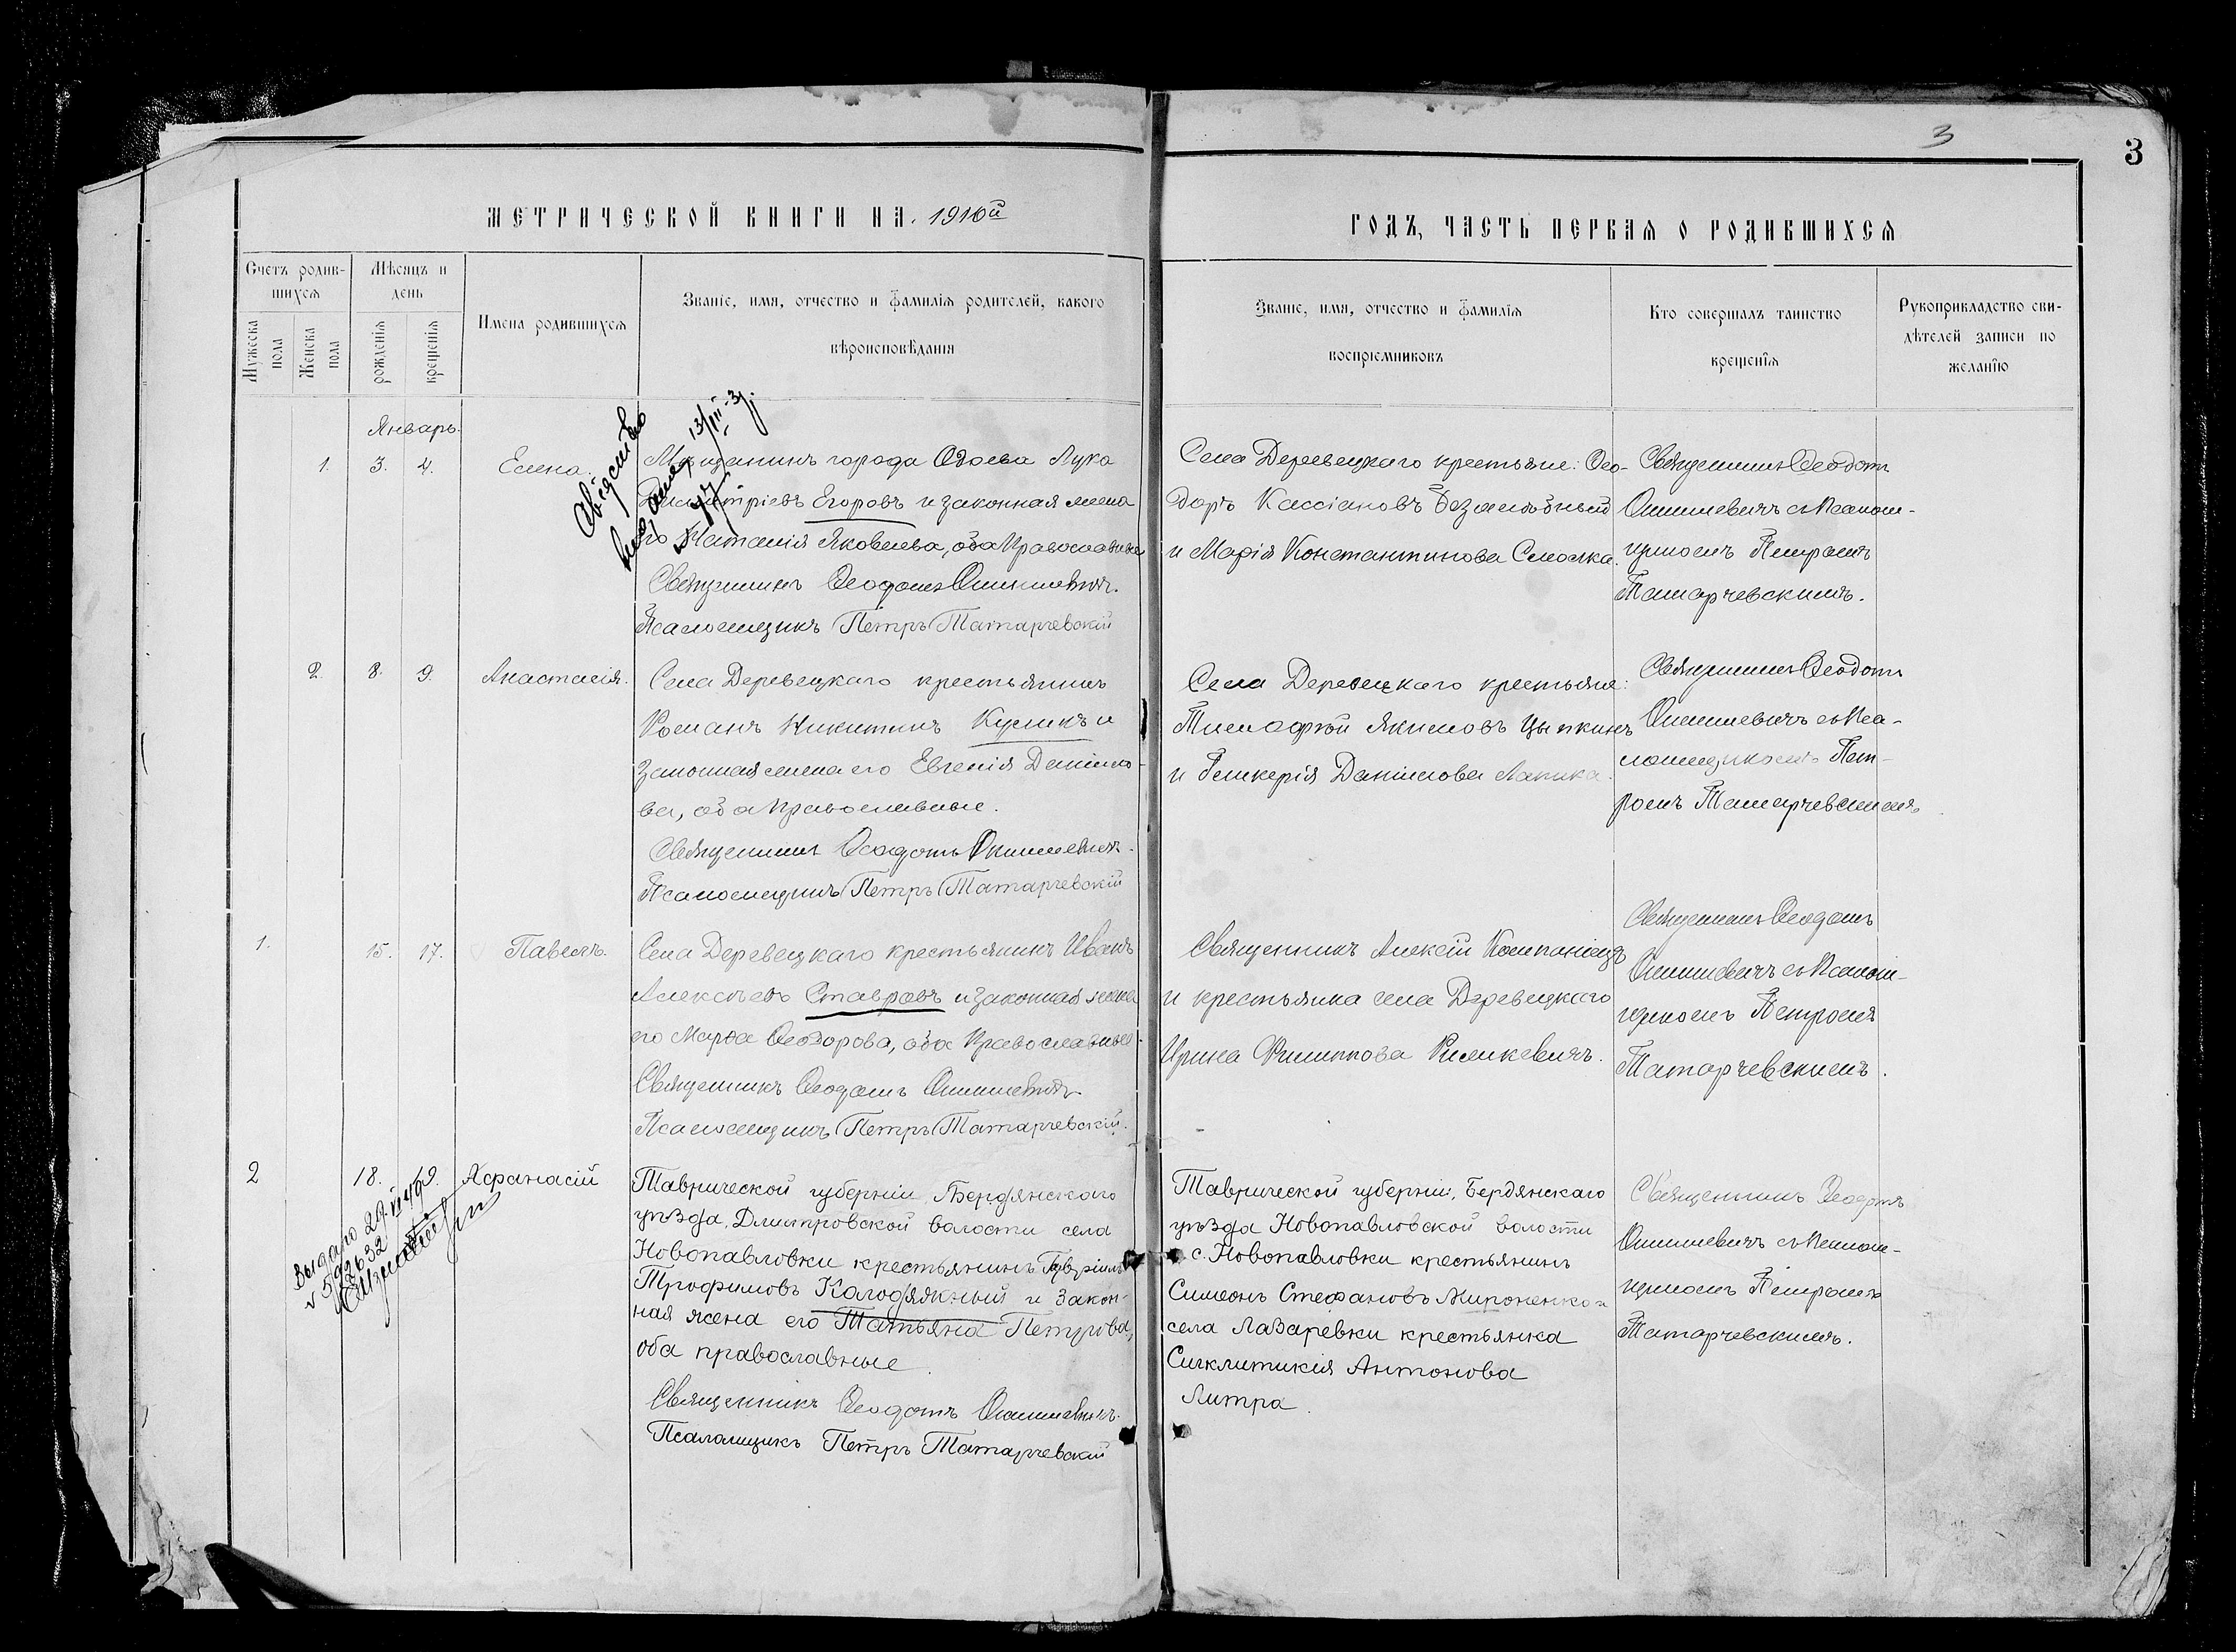 3
3
МЕТРИЧЕСКОЙ КНИГИ НА 1916й
ГОДЪ, ЧАСТЬ ПЕРВАЯ О РОДИВШИХСЯ
Счетъ родив-
шихся
Мужеска пола
Женска пола
Мѣсяцъ и
день
рожденія
крещенія
Имена родившихся
Званіе, имя, отчество и фамилія родителей, какого
вѣроисповѣданія
Званіе, имя, отчество и фамилія
воспріемниковъ
Кто совершалъ таинство
крещенія
Рукоприкладство сви-
дѣтелей записи по
желанію
Январь.
1. 3. 4. Елена.
Свідоцтво
видано 13/III-3
Мѣщанинъ города Одоева Лука
Димитріевъ Егоровъ и законная жена
его Наталія Яковлева, оба Православные
Священникъ Ѳеодотъ Опишневичъ.
Псаломщикъ Петръ Татарчевскій
Села Деревецкаго крестьяне: Ѳео-
доръ Кассіановъ Беззлобный
и Марія Константинова Смолка.
Священникъ Ѳеодотъ
Опишневичъ съ Псалом-
щикомъ Петромъ
Татарчевскимъ.
2. 8. 9. Анастасія.
Села Деревецкаго крестьянинъ
Романъ Никитинъ Куликъ и
законная жена его Евгенія Данило-
ва, оба Православные.
Священникъ Ѳеодотъ Опишневичъ.
Псаломщикъ Петръ Татарчевскій
Села Деревецкаго крестьяне:
Тимофей Якимовъ Цыпкинъ
и Гликерія Данилова
Священникъ Ѳеодотъ
Опишневичъ съ Пса-
ломщикомъ Пет-
ромъ Татарчевскимъ
1. 15. 17. Павелъ.
Села Деревецкаго крестьянинъ Иванъ
Алексѣевъ Ставровъ и законная жена
его Марѳа Ѳеодорова, оба Православные.
Священникъ Ѳеодотъ Опишневичъ
Псаломщикъ Петръ Татарчевскій.
Священникъ Алексій Компаніецъ
и крестьянка села Деревецкаго
Ирина Филиппова
Священникъ Ѳеодотъ
Опишневичъ съ Псалом-
щикомъ Петромъ
Татарчевскимъ.
2 18. 19. Афанасій
Выдано 29.VI 49
v 592632
Таврической губерніи, Бердянскаго
уѣзда, Дмитровской волости села
Новопавловки крестьянинъ Гавріилъ
Трофимовъ Калодяжный и закон-
ная жена его Татьяна Петрова,
оба православные.
Священникъ Ѳеодотъ Опишневичъ.
Псаломщикъ Петръ Татарчевскій
Таврической губерніи, Бердянскаго
уѣзда Новопавловской волости
с. Новопавловки крестьянинъ
Симеонъ Стефановъ Мироненко и
села Лазаревки крестьянка
Синклитикія Антонова
Литра.
Священникъ Ѳеодотъ
Опишневичъ съ Псалом-
щикомъ Петромъ
Татарчевскимъ.